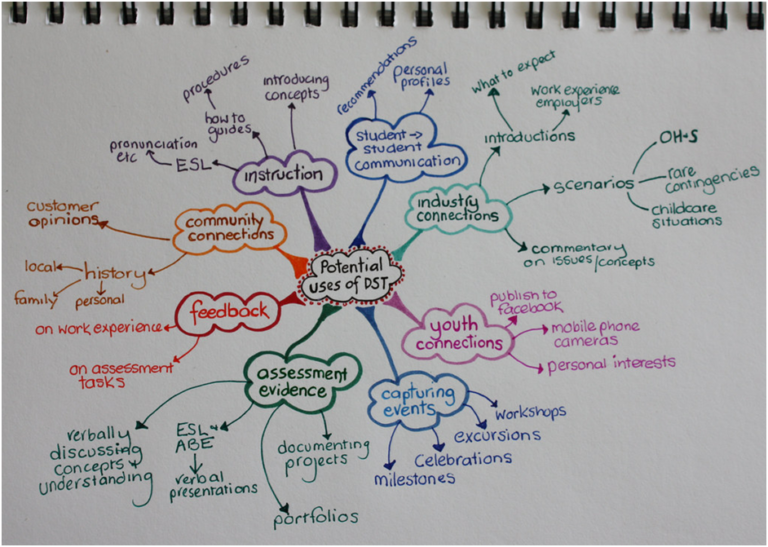 Potential
uses of DST
instruction
introducing
concepts
how to
guides
procedures
ESL
pronunciation
etc
student →
student
communication
recommendations
personal
profiles
industry
connections
introductions
what to expect
work experience
employers
scenarios
OH+S
rare
contingencies
childcare
situations
commentary
on issues/concepts
youth
connections
publish to
facebook
mobile phone
cameras
personal interests
capturing
events
workshops
excursions
celebrations
milestones
assessment
evidence
documenting
projects
portfolios
ESL +
ABE
verbal
presentations
verbally
discussing
concepts +
understanding
feedback
on work experience
on assessment
tasks
community
connections
customer
opinions
history
local
family
personal